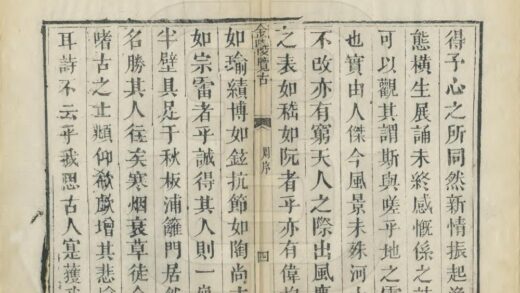 得予心之所同然新情振起逸
態橫生展誦未終感慨係之
可以觀其謂斯與嗟乎地之靈
也實由人傑今風景未殊河
不改亦有窮天人之際出風塵
之表如嵇如阮者乎亦有偉抱
金陵覽古
周序
四
如瑜績博如鉉抗節如陶尚
如宗雷者乎誠得其人則一
半壁具足于秋板浦籬門居然
名勝其人徃矣寒烟衰草徒令
嗜古之士頫仰欷歔增其悲
耳詩不云乎我思古人寔獲我